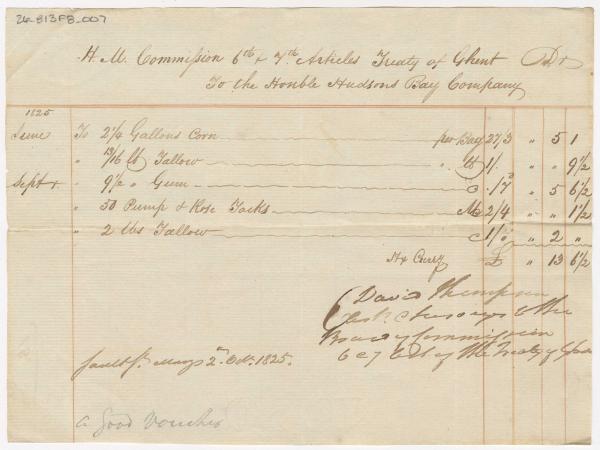 24-813FB-007
H. M. Commission 6th & 7th Articles Treaty of Ghent Dr
To the Honble Hudsons Bay Company
1825
June To 2¼ Gallons Corn per Bag 27/3 " 5 1
" 13/16 lb Tallow " lb 1/. " " 9½
Septr " 9½ " Gum 7d " 5 6½
" 50 Pump & Rose Tacks M 2/4 " " 1½
" 2 lbs Tallow 1/. " 2 "
Hx Curry £ " 13 6½
David Thompson
& Surveyor to the
Board of Commission
6 & 7 Art of the Treaty of Ghent
Sault St. Marys 2nd Octr. 1825.
a good Voucher